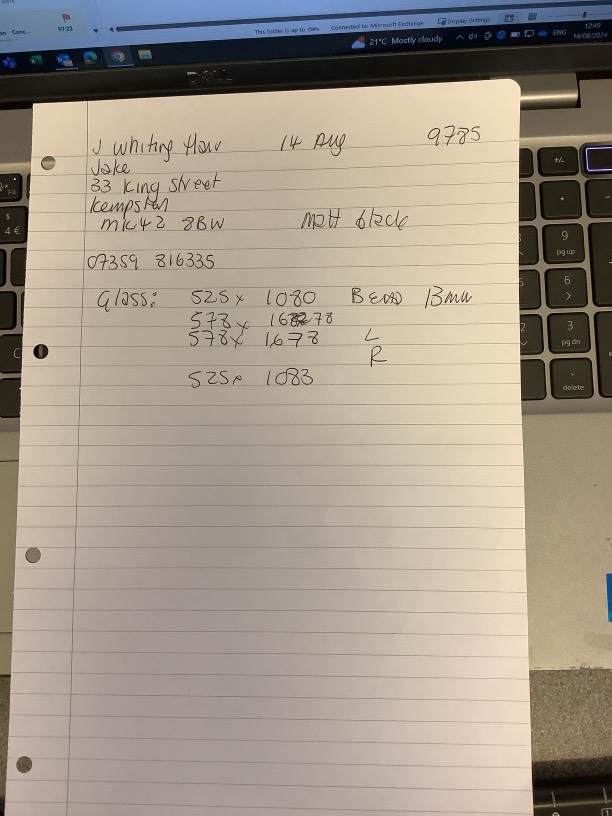 This folder is up to date. Connected to: Microsoft Exchange Display Settings
07:22
21°C Mostly cloudy ENG 12:49
14/08/2024
DELL
J Whiting 14 Aug 9785
Jake
33 King Street
Kempston
MK42 8BW Matt black
07359 816335
Glass: 525 x 1080 BEAD 13mm
578 x 1678
578 x 1678 L
R
525 x 1083
F4
$
4 €
+/-
*
9
pg up
6
>
3
pg dn
.
delete